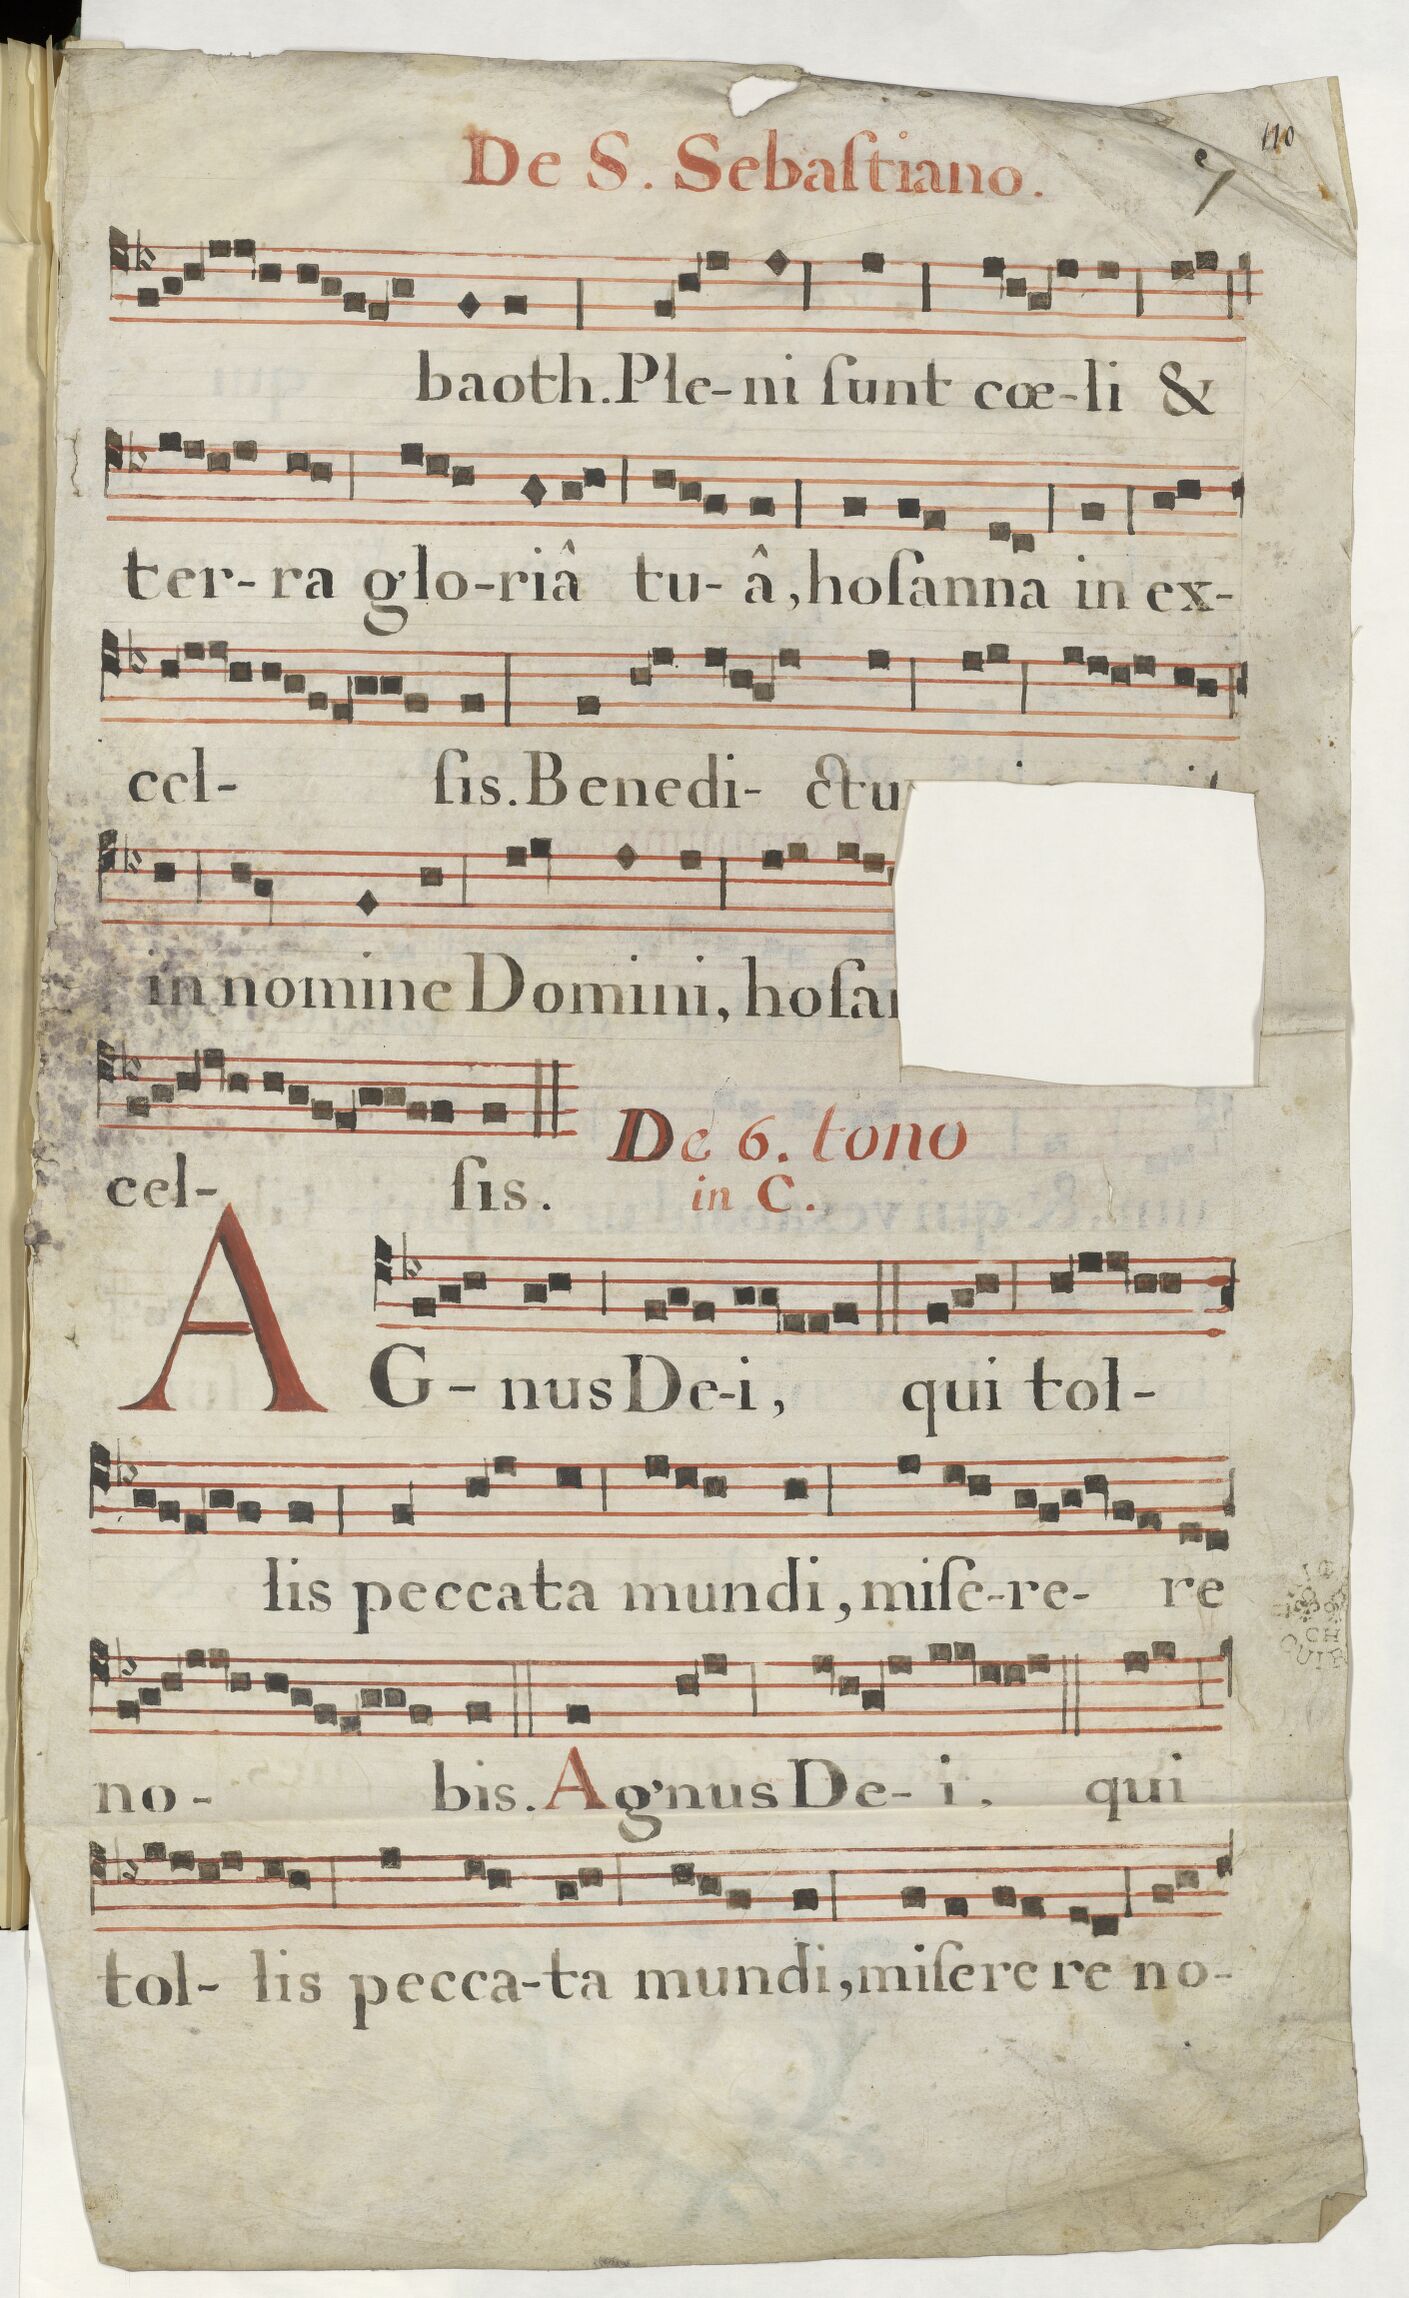 110
De S. Sebaſtiano.
baoth. Ple-ni ſunt cœ-li &
ter-ra glo-riâ tu-â, hoſanna in ex-
cel- ſis. Benedi- ctu
in nomine Domini, hoſan
cel- ſis. De 6. tono
in C.
AG-nus De-i, qui tol-
lis peccata mundi, miſe-re- re
no- bis. Agnus De- i, qui
tol- lis pecca-ta mundi, miſerere no-